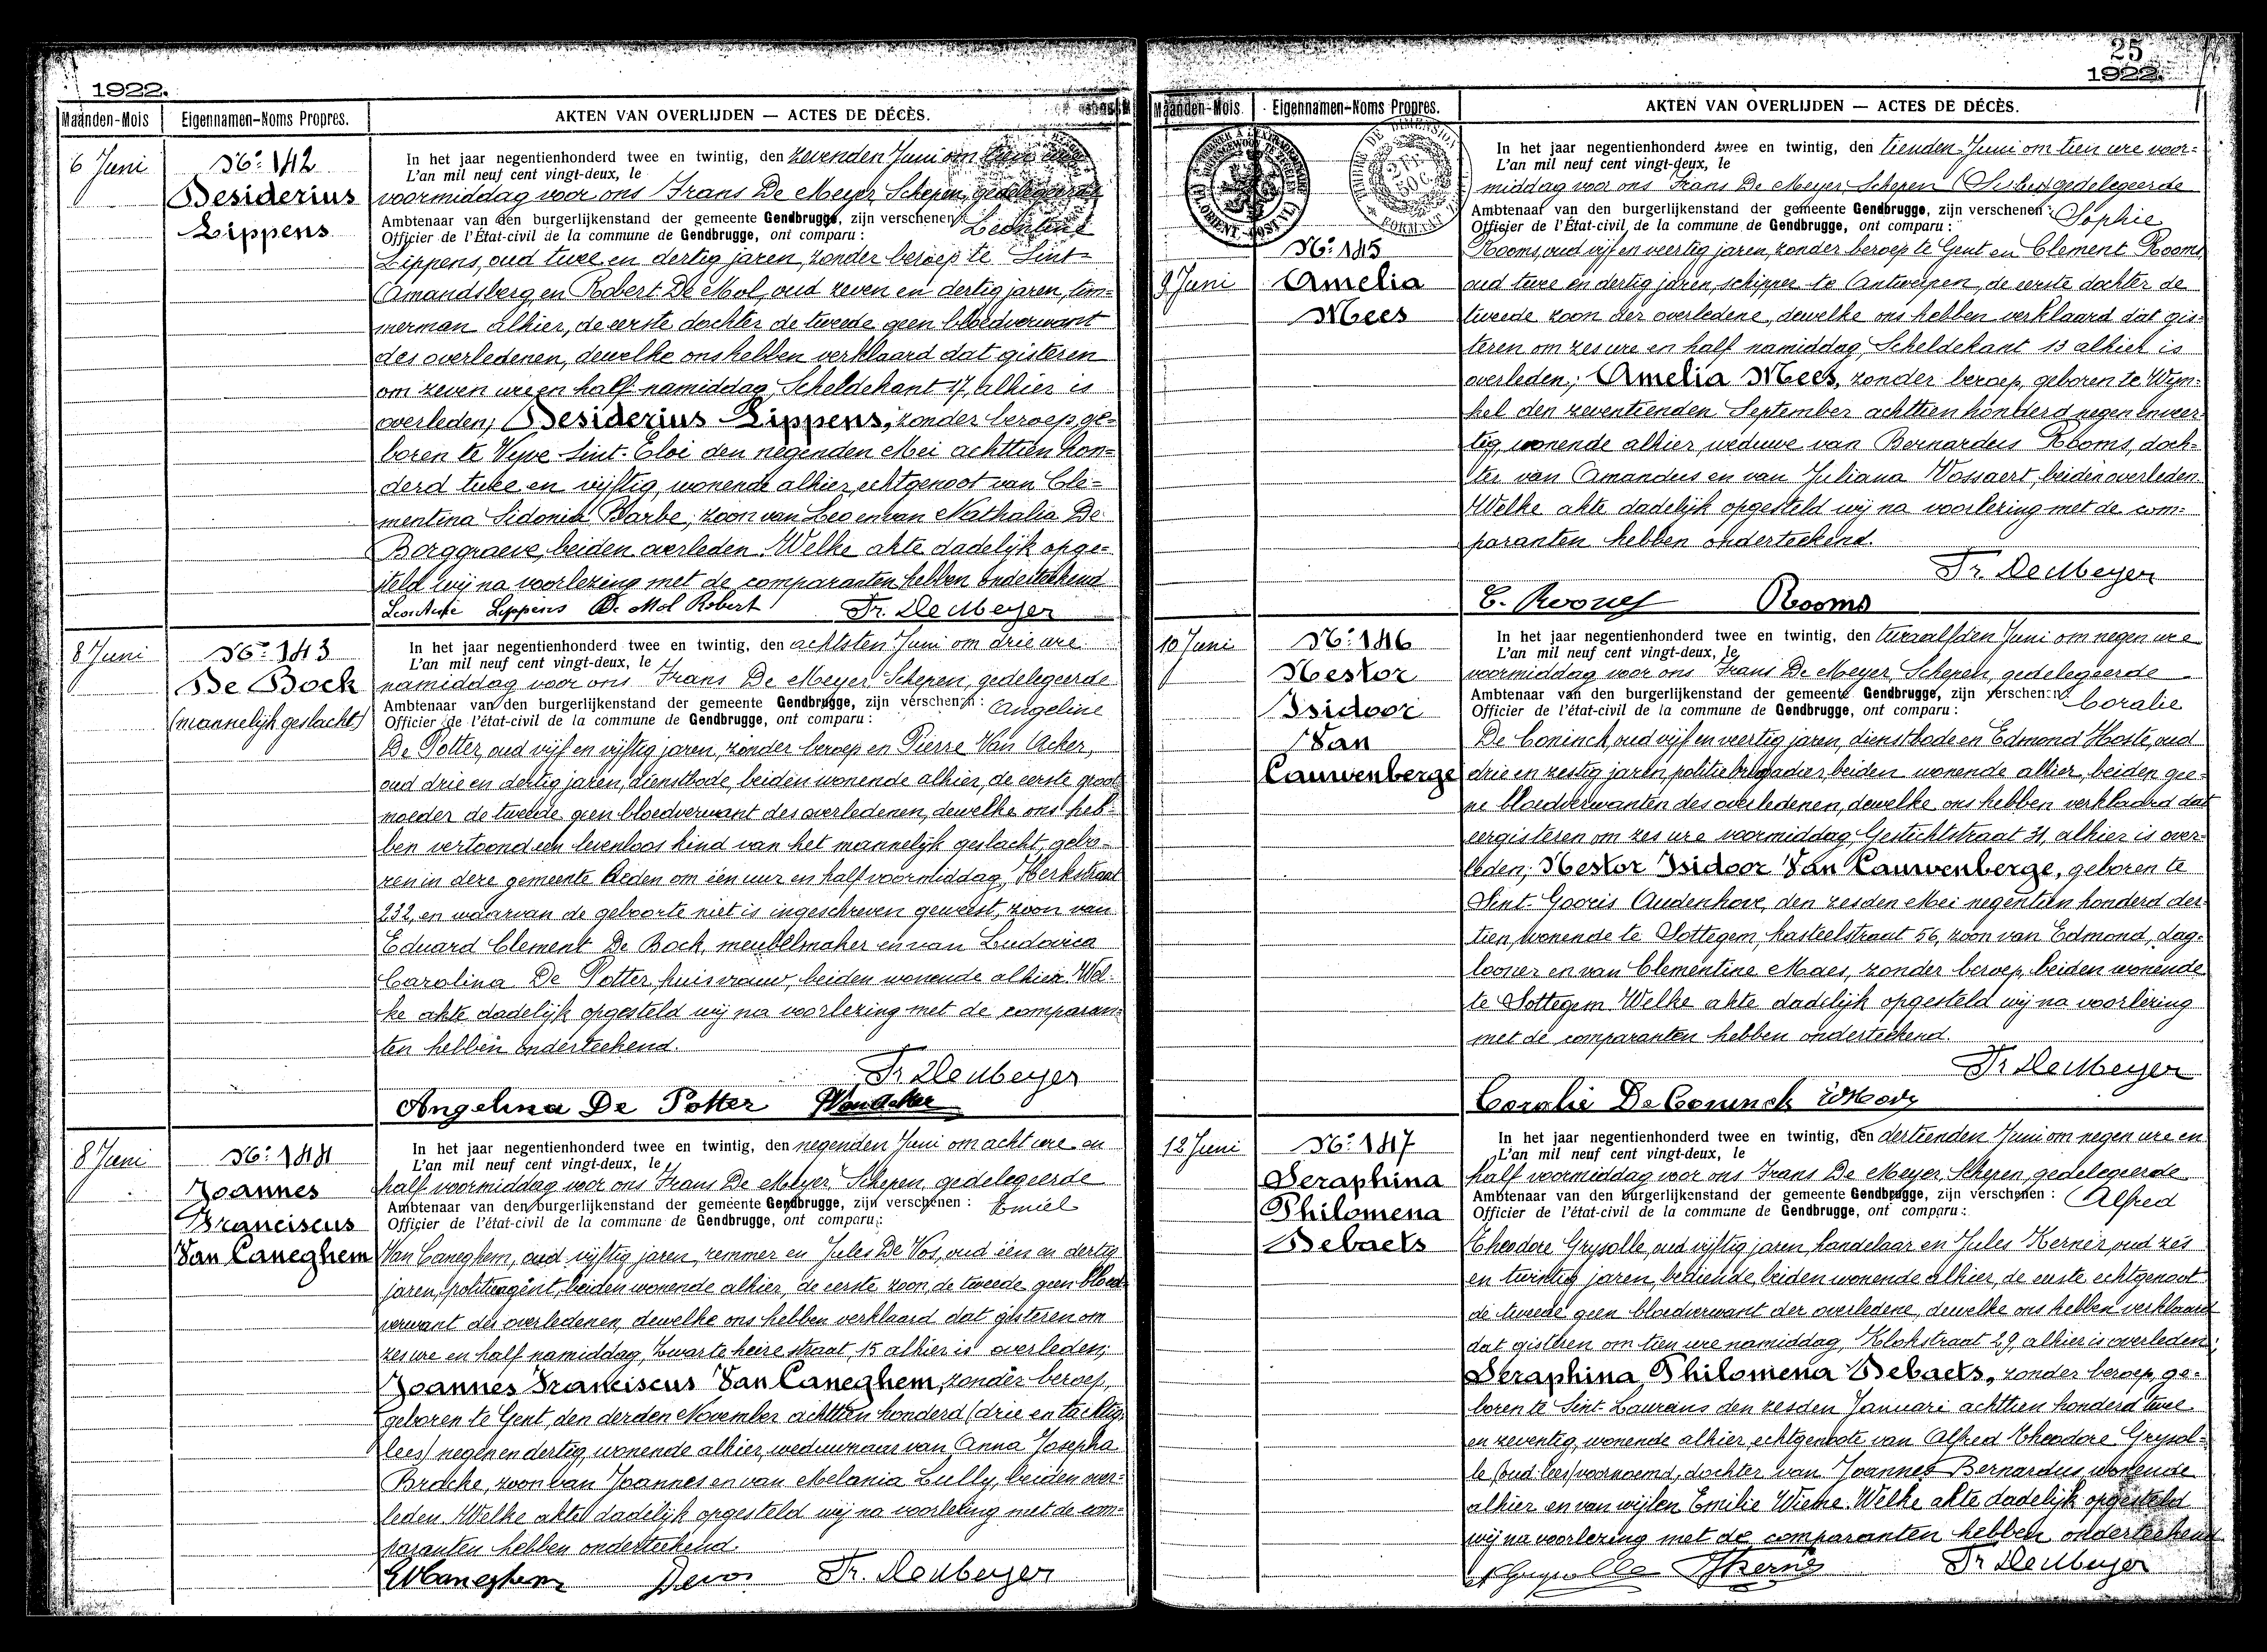 1922.
Maanden-Mois
Eigennamen-Noms Propres.
AKTEN VAN OVERLIJDEN — ACTES DE DÉCÈS.
6 Juni
No 142
Desiderius
Lippens
In het jaar negentienhonderd twee en twintig, den zevenden Juni om
L'an mil neuf cent vingt-deux, le
voormiddag voor ons Frans De Meyer Schepen, gedelegeerde
Ambtenaar van den burgerlijkenstand der gemeente Gendbrugge, zijn verschenen: Leontine
Officier de l'État-civil de la commune de Gendbrugge, ont comparu :
Lippens, oud twee en dertig jaren, zonder beroep te Sint-
Amandsberg en Robert De Mol, oud zeven en dertig jaren, tim=
merman alhier, de eerste dochter de tweede geen bloedverwant
des overledenen, dewelke ons hebben verklaard dat gisteren
om zeven ure en half namiddag, Scheldekant 17, alhier is
overleden; Desiderius Lippens, zonder beroep ge=
boren te Vyve Sint-Eloi den negenden Mei achttien hon=
derd twee en vijftig, wonende alhier, echtgenoot van Cle=
mentina Sidonia Barbe, zoon van Leo en van Nathalia De
Borggraeve, beiden overleden. Welke akte dadelijk opge=
steld wij na voorlezing met de comparanten hebben onderteekend
Leontine Lippens De Mol Robert Fr. De Meyer
8 Juni
No 143
De Bock
(mannelijk geslacht)
In het jaar negentienhonderd twee en twintig, den achtsten Juni om drie ure
L'an mil neuf cent vingt-deux, le
namiddag voor ons Frans De Meyer Schepen, gedelegeerde
Ambtenaar van den burgerlijkenstand der gemeente Gendbrugge, zijn verschenen : Angeline
Officier de l'état-civil de la commune de Gendbrugge, ont comparu :
De Potter, oud vijf en vijftig jaren, zonder beroep en Pierre Van Acker,
oud drie en dertig jaren, dienstbode, beiden wonende alhier, de eerste groot
moeder de tweede geen bloedverwant des overledenen, dewelke ons heb=
ben vertoond een levenloos kind van het mannelijk geslacht, gebo=
ren in deze gemeente heden om één uur en half voormiddag, Kerkstraat
232, en waarvan de geboorte niet is ingeschreven geweest, zoon van
Eduard Clement De Bock, meubelmaker en van Ludovica
Carolina De Potter, huisvrouw, beiden wonende alhier. Wel=
ke akte dadelijk opgesteld wij na voorlezing met de comparan=
ten hebben onderteekend.
Fr. De Meyer
Angelina De Potter Van Acker
8 Juni
No 144
Joannes
Franciscus
Van Caneghem
In het jaar negentienhonderd twee en twintig, den negenden Juni om acht ure en
L'an mil neuf cent vingt-deux, le
half voormiddag voor ons Frans De Meyer Schepen, gedelegeerde
Ambtenaar van den burgerlijkenstand der gemeente Gendbrugge, zijn verschenen : Emiel
Officier de l'état-civil de la commune de Gendbrugge, ont comparu :
Van Caneghem, oud vijftig jaren, remmer en Jules De Vos, oud één en dertig
jaren, politieagent, beiden wonende alhier, de eerste zoon, de tweede geen bloed
verwant des overledenen, dewelke ons hebben verklaard dat gisteren om
zes ure en half namiddag, Zwarte heire straat, 15 alhier is overleden;
Joannes Franciscus Van Caneghem, zonder beroep,
geboren te Gent, den derden November achttien honderd (drie en tachtig
lees) negen en dertig, wonende alhier, weduwnaar van Anna Josepha
Bracke, zoon van Joannes en van Melania Lully, beiden over=
leden. Welke akte dadelijk opgesteld wij na voorlezing met de com=
paranten hebben onderteekend.
EVCaneghem Devos Fr. De Meyer
25
1922.
Maanden-Mois.
Eigennamen-Noms Propres.
AKTEN VAN OVERLIJDEN — ACTES DE DÉCÈS.
9 Juni
No 145
Amelia
Mees
In het jaar negentienhonderd twee en twintig, den tienden Juni om tien ure voor=
L'an mil neuf cent vingt-deux, le
middag voor ons Frans De Meyer Schepen gedelegeerde
Ambtenaar van den burgerlijkenstand der gemeente Gendbrugge, zijn verschenen : Sophie
Officier de l'État-civil de la commune de Gendbrugge, ont comparu :
Rooms, oud vijf en veertig jaren, zonder beroep te Gent en Clement Rooms,
oud twee en dertig jaren, schipper te Antwerpen, de eerste dochter de
tweede zoon der overledene, dewelke ons hebben verklaard dat gis=
teren om zes ure en half namiddag, Scheldekant 13 alhier is
overleden; Amelia Mees, zonder beroep, geboren te Wyn=
kel den zeventienden September achttien honderd negen en veer=
tig, wonende alhier, weduwe van Bernardus Rooms, doch=
ter van Amandus en van Juliana Vossaert, beiden overleden.
Welke akte dadelijk opgesteld wij na voorlezing met de com=
paranten hebben onderteekend.
Fr. De Meyer
Rooms
10 Juni
No 146
Nestor
Isidoor
Van
Cauwenberge
In het jaar negentienhonderd twee en twintig, den twaalfden Juni om negen ure
L'an mil neuf cent vingt-deux, le
voormiddag voor ons Frans De Meyer, Schepen, gedelegeerde
Ambtenaar van den burgerlijkenstand der gemeente Gendbrugge, zijn verschenen : Coralie
Officier de l'état-civil de la commune de Gendbrugge, ont comparu :
De Coninck, oud vijf en veertig jaren, dienstbode en Edmond Hoste, oud
drie en zestig jaren politiebrigadier, beiden wonende alhier, beiden gee=
ne bloedverwanten des overledenen, dewelke ons hebben verklaard dat
eergisteren om zes ure voormiddag, Gestichtstraat 31, alhier is over=
leden; Nestor Isidoor Van Cauwenberge, geboren te
Sint-Gooris Audenhove, den zesden Mei negentien honderd der=
tien, wonende te Sottegem, kasteelstraat 56, zoon van Edmond, dag=
looner en van Clementine Maes, zonder beroep, beiden wonende
te Sottegem. Welke akte dadelijk opgesteld wij na voorlezing
met de comparanten hebben onderteekend.
Fr De Meyer
Coralie De Coninck
12 Juni
No 147
Seraphina
Philomena
Debaets
In het jaar negentienhonderd twee en twintig, den dertienden Juni om negen ure en
L'an mil neuf cent vingt-deux, le
half voormiddag voor ons Frans De Meyer, Schepen, gedelegeerde
Ambtenaar van den burgerlijkenstand der gemeente Gendbrugge, zijn verschenen : Alfred
Officier de l'état-civil de la commune de Gendbrugge, ont comparu :
Theodore Grysolle, oud vijftig jaren, handelaar en Jules Kerner, oud zes
en twintig jaren, bediende, beiden wonende alhier, de eerste echtgenoot
de tweede geen bloedverwant der overledene, dewelke ons hebben verklaard
dat gisteren om tien ure namiddag, Klokstraat 29, alhier is overleden;
Seraphina Philomena Debaets, zonder beroep, ge=
boren te Sint-Laureins den zesden Januari achttien honderd twee
en zeventig, wonende alhier, echtgenoote van Alfred Theodore Grysol=
le (oud lees) voornoemd, dochter van Joannes Bernardus wonende
alhier en van wijlen Emilie Wieme. Welke akte dadelijk opgesteld
wij na voorlezing met de comparanten hebben onderteekend
Fr De Meyer